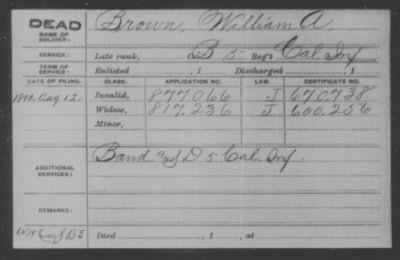 DEAD
NAME OF SOLDIER:
Brown, William A.
SERVICE:
Late rank, Co B 5 Reg't Cal. Inf
TERM OF SERVICE:
Enlisted , 1 Discharged , 1
DATE OF FILING. CLASS. APPLICATION NO. LAW. CERTIFICATE NO.
1890. Aug 12. Invalid, 877066 J 670.738
Widow, 817,236 J 600,256
Minor,
ADDITIONAL SERVICES:
Band and D 5 Cal. Inf.
REMARKS:
Died , 1 , at